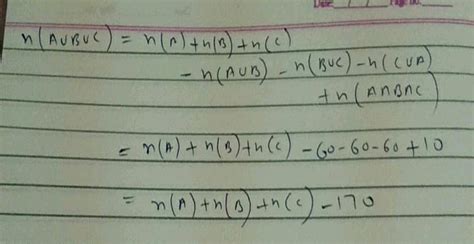 Date
n(A∪B∪C) = n(A) + n(B) + n(C)
- n(A∪B) - n(B∪C) - n(C∪A)
+ n(A∩B∩C)
= n(A) + n(B) + n(C) - 60 - 60 - 60 + 10
= n(A) + n(B) + n(C) - 170